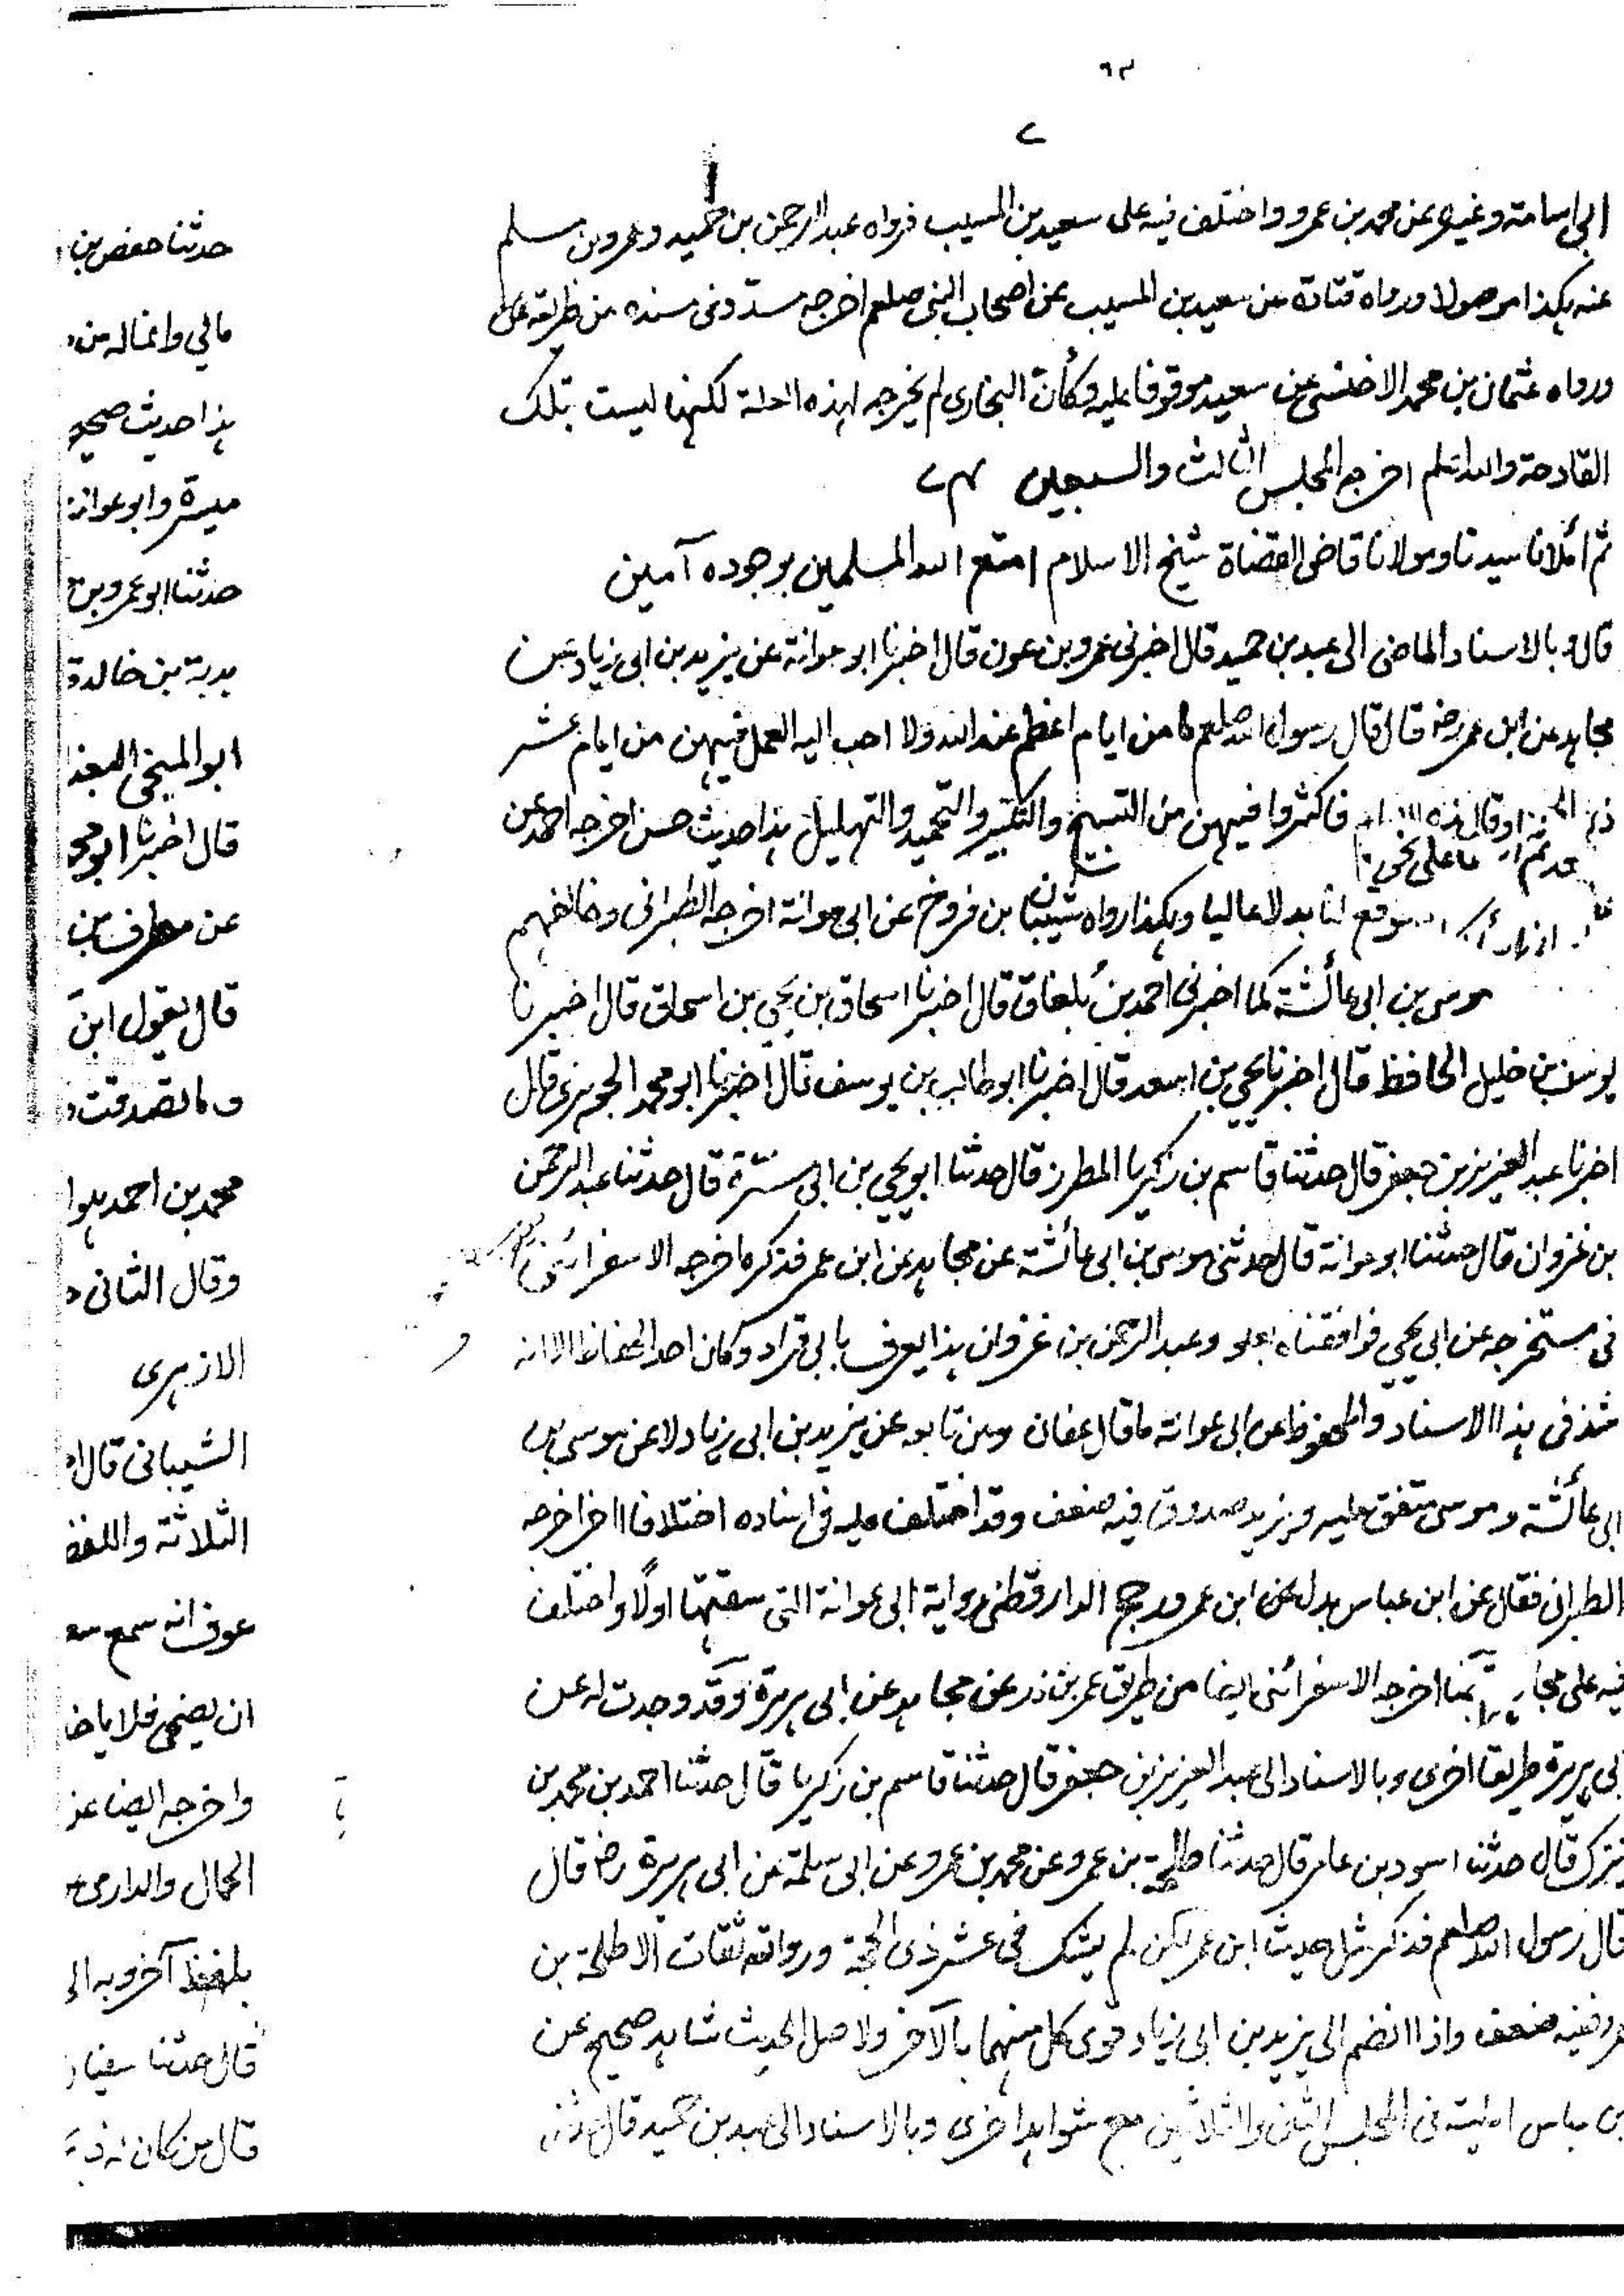 ٦٣
ابى اسامة وغيره عن محمد بن عمرو واختلف فيه على سعيد بن المسيب فرواه عبد الرحمن بن حميد وعمرو بن مسلم
عنه هكذا موصولا ورواه قتادة عن سعيد بن المسيب عن اصحاب النبى صلعم اخرجه مسدد فى مسنده من طريقه
ورواه عثمان بن محمد الاخنسى عن سعيد موقوفا عليه وكأن البخارى لم يخرجه لهذه العلة لكنها ليست بتلك
القادحة والله اعلم اخر المجلس الثالث والسبعين
ثم املانا سيدنا ومولانا قاضى القضاة شيخ الاسلام امتع الله المسلمين بوجوده آمين
قال وبالاسناد الماضى الى عبد بن حميد قال اخبرنى عمرو بن عون قال اخبرنا ابو عوانة عن يزيد بن ابى زياد عن
مجاهد عن ابن عمر رض قال قال رسول الله صلعم ما من ايام اعظم عند الله ولا احب اليه العمل فيهن من ايام عشر
ذى الحجة او قال هذه فاكثروا فيهن من التسبيح والتكبير والتحميد والتهليل هذا حديث حسن اخرجه احمد عن
فوقع لنا بدلا عاليا وهكذا رواه شيبان بن فروخ عن ابى عوانة اخرجه الطبرانى وخالفهم
موسى بن ابى عائشة كما اخبرنى احمد بن بلغاق قال اخبرنا اسحاق بن يحيى بن اسحاق قال اخبرنا
يوسف بن خليل الحافظ قال اخبرنا يحيى بن اسعد قال اخبرنا ابو طالب بن يوسف قال اخبرنا ابو محمد الجوهرى قال
اخبرنا عبد العزيز بن جعفر قال حدثنا قاسم بن زكريا المطرز قال حدثنا ابو يحيى بن ابى مسرة قال حدثنا عبد الرحمن
بن غزوان قال حدثنا ابو عوانة قال حدثنى موسى بن ابى عائشة عن مجاهد عن ابن عمر فذكره اخرجه الاسفرائنى
فى مستخرجه عن ابى يحيى فوافقناه بعلو وعبد الرحمن بن غزوان هذا يعرف بابى قراد وكان احد الحفاظ الا انه
شذ فى هذا الاسناد والمحفوظ عن ابى عوانة ما قال عفان ومن تابعه عن يزيد بن ابى زياد لا عن موسى بن
ابى عائشة وموسى متفق عليه ويزيد صدوق فيه ضعف وقد اختلف عليه فى اسناده اختلافا اخر اخرجه
الطبرانى فقال عن ابن عباس بدل عن ابن عمر ورجح الدارقطنى رواية ابى عوانة التى سقتها اولا واختلف
فيه على مجاهد اخرجه الاسفرائنى ايضا من طريق عمر بن ذر عن مجاهد عن ابى هريرة وقد وجدت له عن
ابى هريرة طريقا اخرى وبالاسناد الى عبد العزيز بن جعفر قال حدثنا قاسم بن زكريا قال حدثنا احمد بن محمد بن
قال حدثنا اسود بن عامر قال حدثنا طلحة بن عمرو عن محمد بن عمرو عن ابى سلمة عن ابى هريرة رض قال
قال رسول الله صلعم فذكر مثل حديث ابن عمر لكن لم يشك فى عشر ذى الحجة ورواته ثقات الا طلحة بن
عمرو ففيه ضعف واذا انضم الى يزيد بن ابى زياد قوى كل منهما بالآخر ولاصل الحديث شاهد صحيح عن
ابن عباس امليته فى المجلس الثانى والثلاثين مع شواهد اخرى وبالاسناد الى عبد بن حميد قال
حدثنا حفص بن
مالي وانما له من
هذا حديث صحيح
ميسرة وابو عوانة
حدثنا ابو عمرو بن
هدبة بن خالد
ابو المنجى
قال اخبرنا ابو محمد
عن مطرف بن
قال يقول ابن
وما تصدقت
محمد بن احمد
وقال الثانى
الازهرى
الشيبانى قال
الثلاثة واللفظ
عوف انه سمع
ان يضحى فلا ياخذ
واخرجه ايضا عن
الحمال والدارمى
بلفظ آخر وبه
قال حدثنا سفيان
قال من كان له ذبح